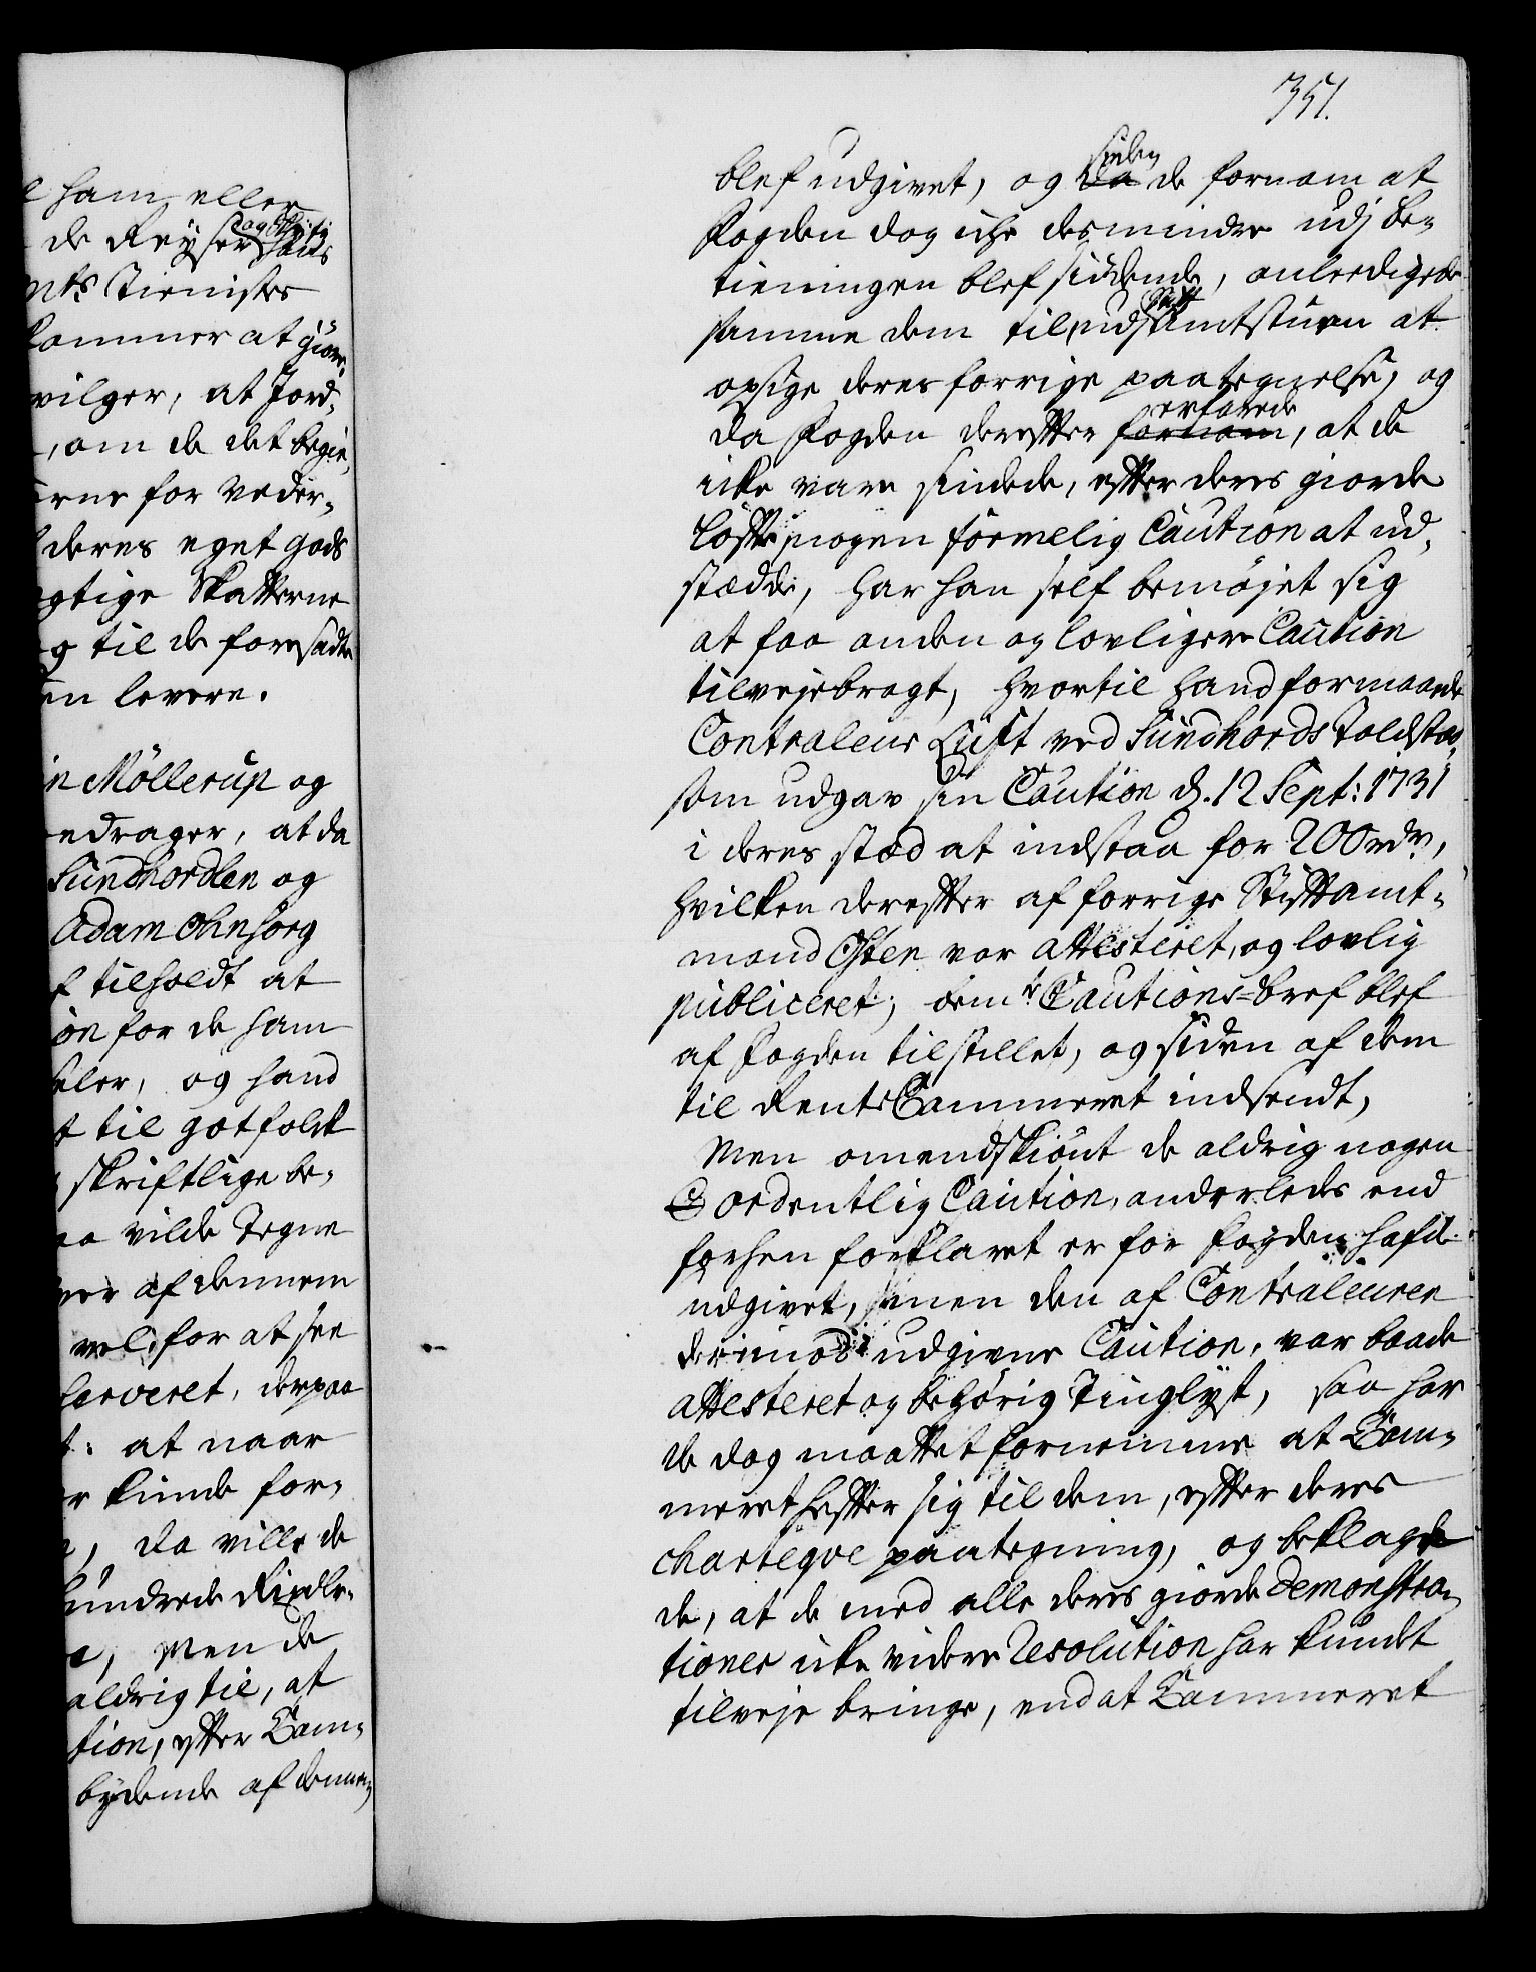 351.
blef udgivet, og siden de fornam at
Fogden dog icke desmindre udj be-
tieningen blef siddende, anleedigede
samme dem til, udj Stift Amtstuen at
opsige deres forrige paategnelse, og
da Fogden derefter erfarede, at de
icke vare sindede, efter deres giorde
löfte nogen formelig Caution at ud-
stædde, har han self bemøjet sig
at faa anden og lovligere Caution
tilvejebragt, hvortil hand formaaede
Contraleur Luft ved Sundhords Toldsted,
som udgav sin Caution d. 12 Sept: 1731
i deres stæd at indstaa for 200 rdr,
hvilken derefter af forrige Stiftamt-
mand Osten var attesteret, og lovlig
publiceret; bemte Cautions-bref blef
af Fogden tilstillet, og siden af dem
til Rente Cammeret indsendt,
Men omendskiönt de aldrig nogen
ordentlig Caution, anderleds end
forhen forklaret er for Fogden hafde
udgivet, men den af Contraleuren
derimod udgivne Caution, var baade
attesteret og behørig Tinglyst, saa har
de dog maattet fornemme at Cam-
meret hefter sig til dem, efter deres
charteqve paategning, og beklage
de, at de med alle deres giorde Demonstra-
tioner icke videre Resolution har kundet
tilveje bringe, end at Cammeret
e ham eller
de Reyser og Skrifts hans
mts Tienister
kommer at giöre,
vilger, at Jord-
, om de det begie-
erne for Veder-
deres eget gods
gtige Skatterne
g til de foresadte
en levere.
in Möllerup og
endrager, at da
Sundhordlen og
Adam Ohnsorg
f tilholdt at
ion for de ham
eler, og hand
t til Gotfolck
skriftlige be-
aa vilde Tegne
ver af dennem
vel, for at see
serveret, derpaa
t: at naar
r kunde for-
, da ville de
hundrede Rixdlr.
e, Men de
aldrig til, at
tion, efter Cam-
bydende af dennem